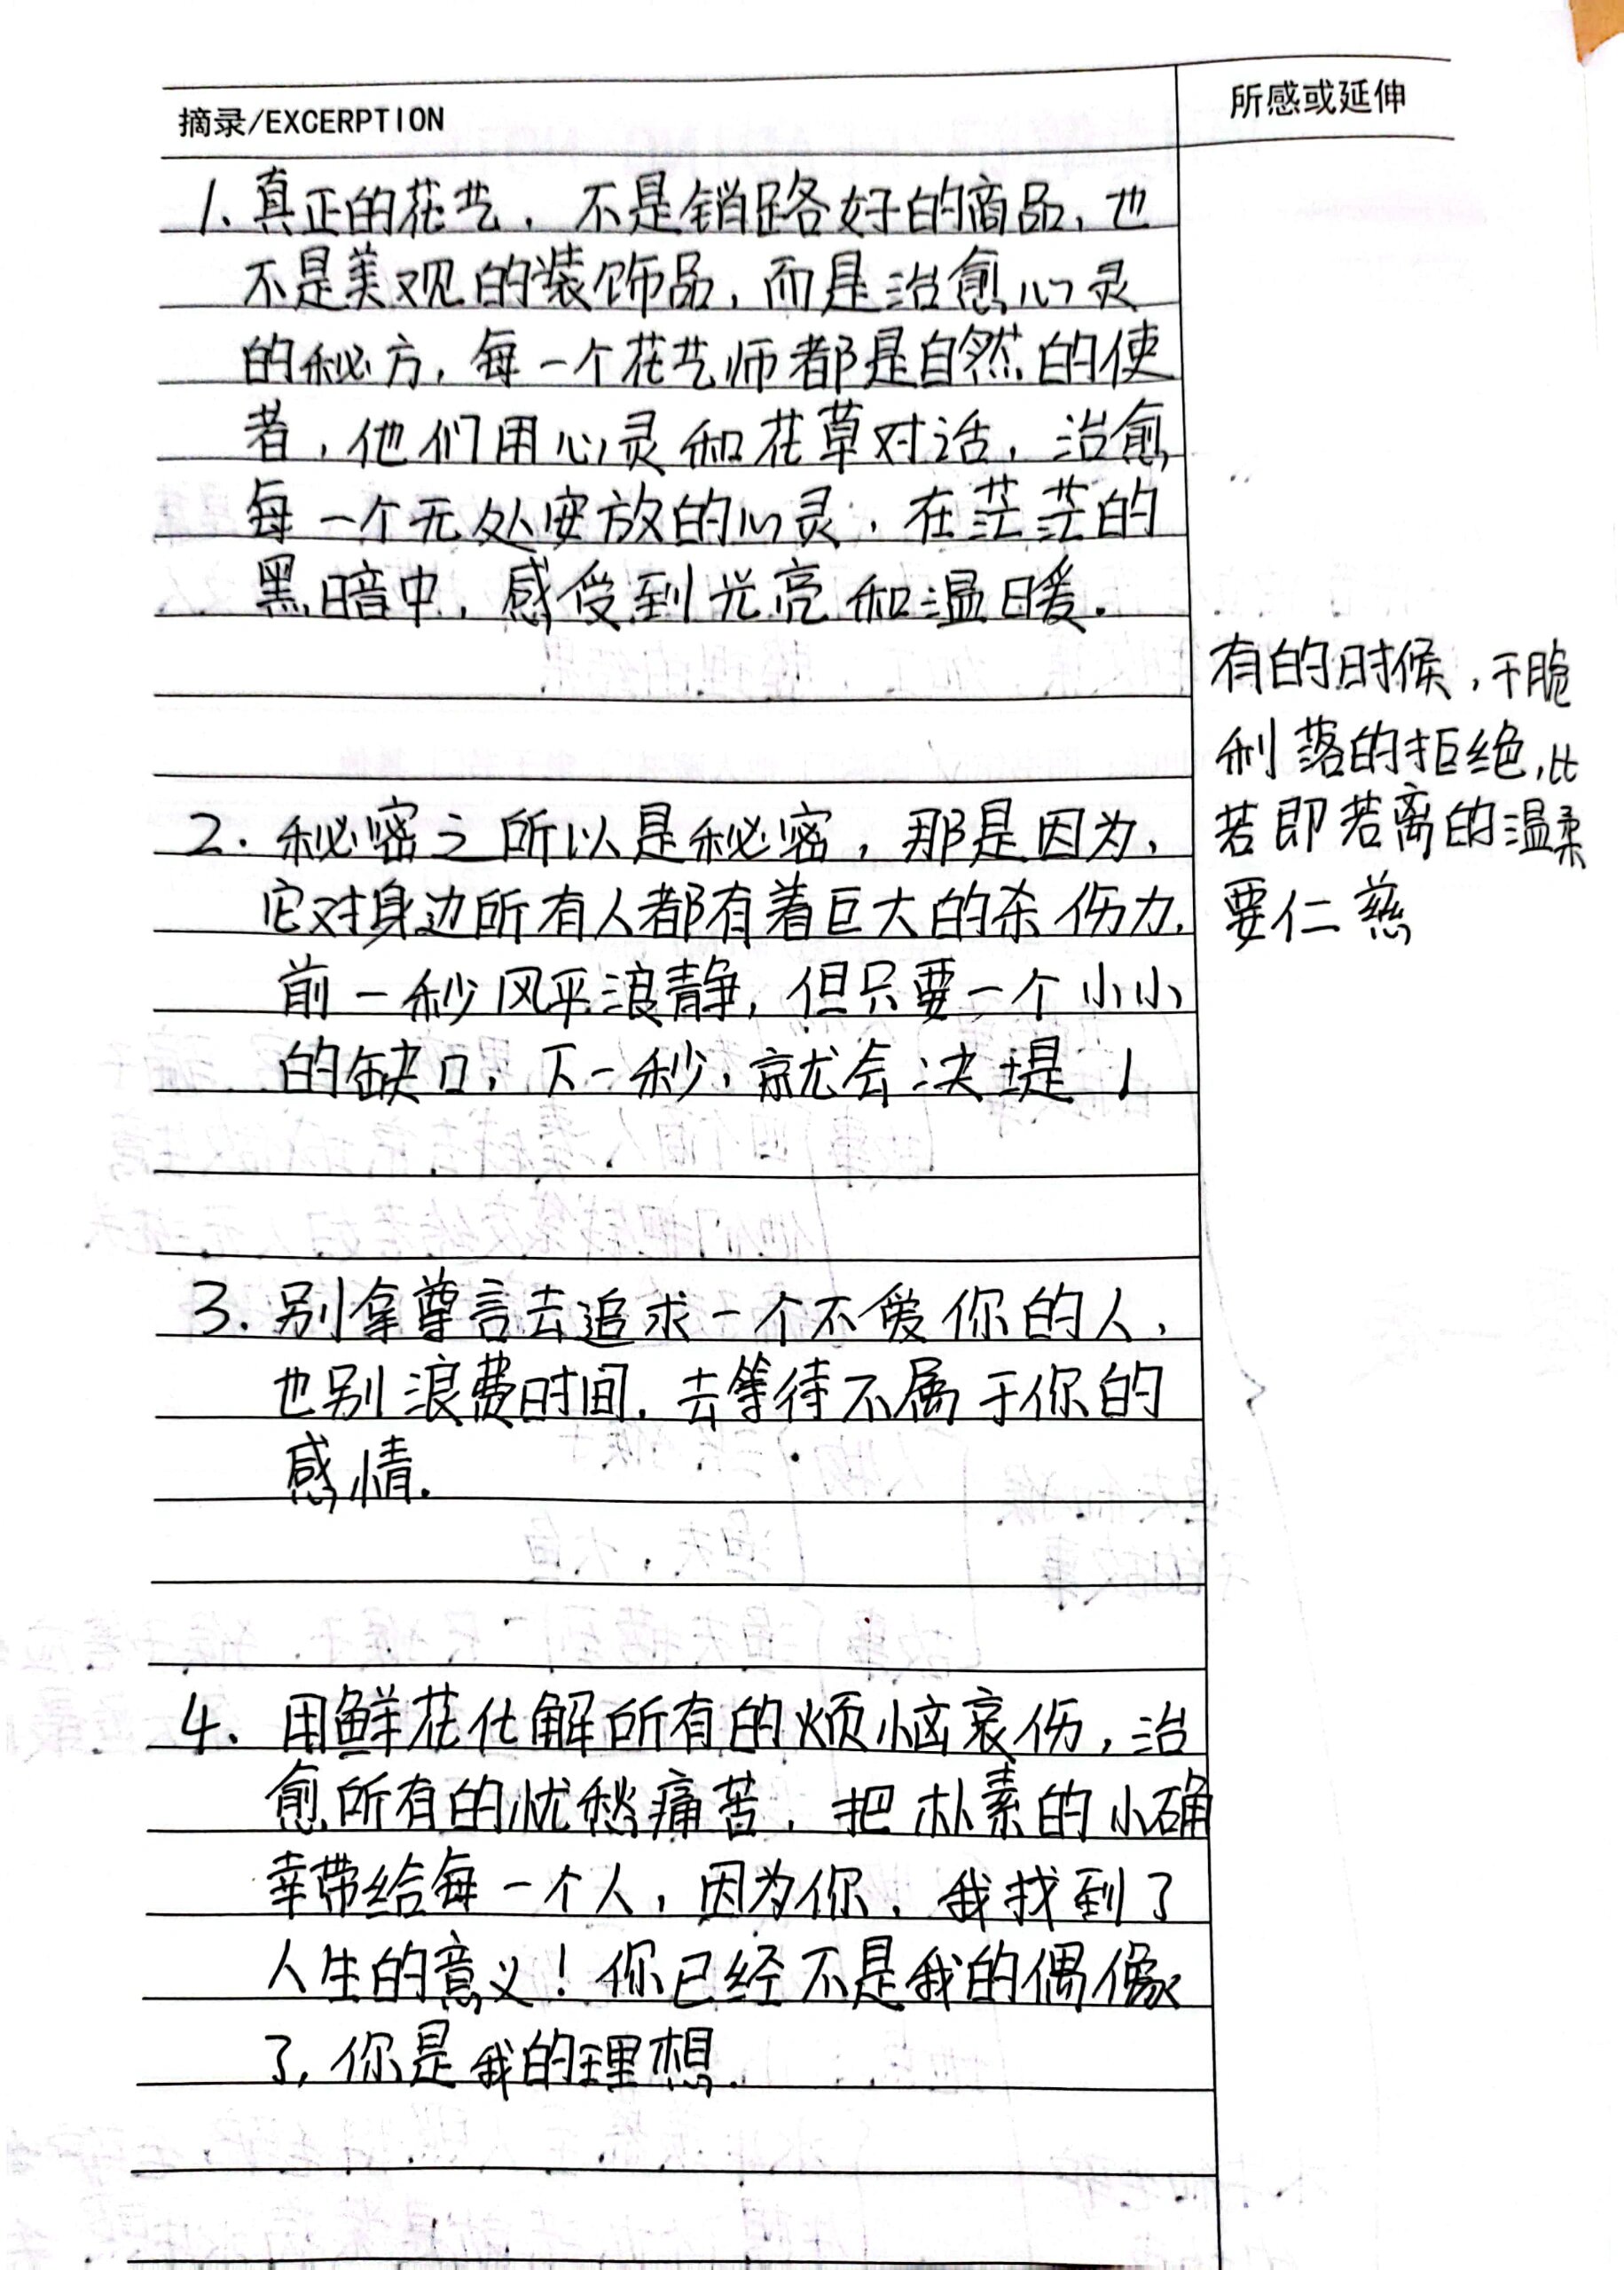 摘录/EXCERPTION
所感或延伸
1. 真正的花艺，不是销路好的商品，也
不是美观的装饰品，而是治愈心灵
的秘方，每一个花艺师都是自然的使
者，他们用心灵和花草对话，治愈
每一个无处安放的心灵，在茫茫的
黑暗中，感受到光亮和温暖.
2. 秘密之所以是秘密，那是因为，
它对身边所有人都有着巨大的杀伤力，
前一秒风平浪静，但只要一个小小
的缺口，下一秒，就会决堤！
3. 别拿尊言去追求一个不爱你的人，
也别浪费时间，去等待不属于你的
感情.
4. 用鲜花化解所有的烦恼哀伤，治
愈所有的忧愁痛苦，把朴素的小确
幸带给每一个人，因为你，我找到了
人生的意义！你已经不是我的偶像
了，你是我的理想.
有的时候，干脆
利落的拒绝，比
若即若离的温柔
要仁慈